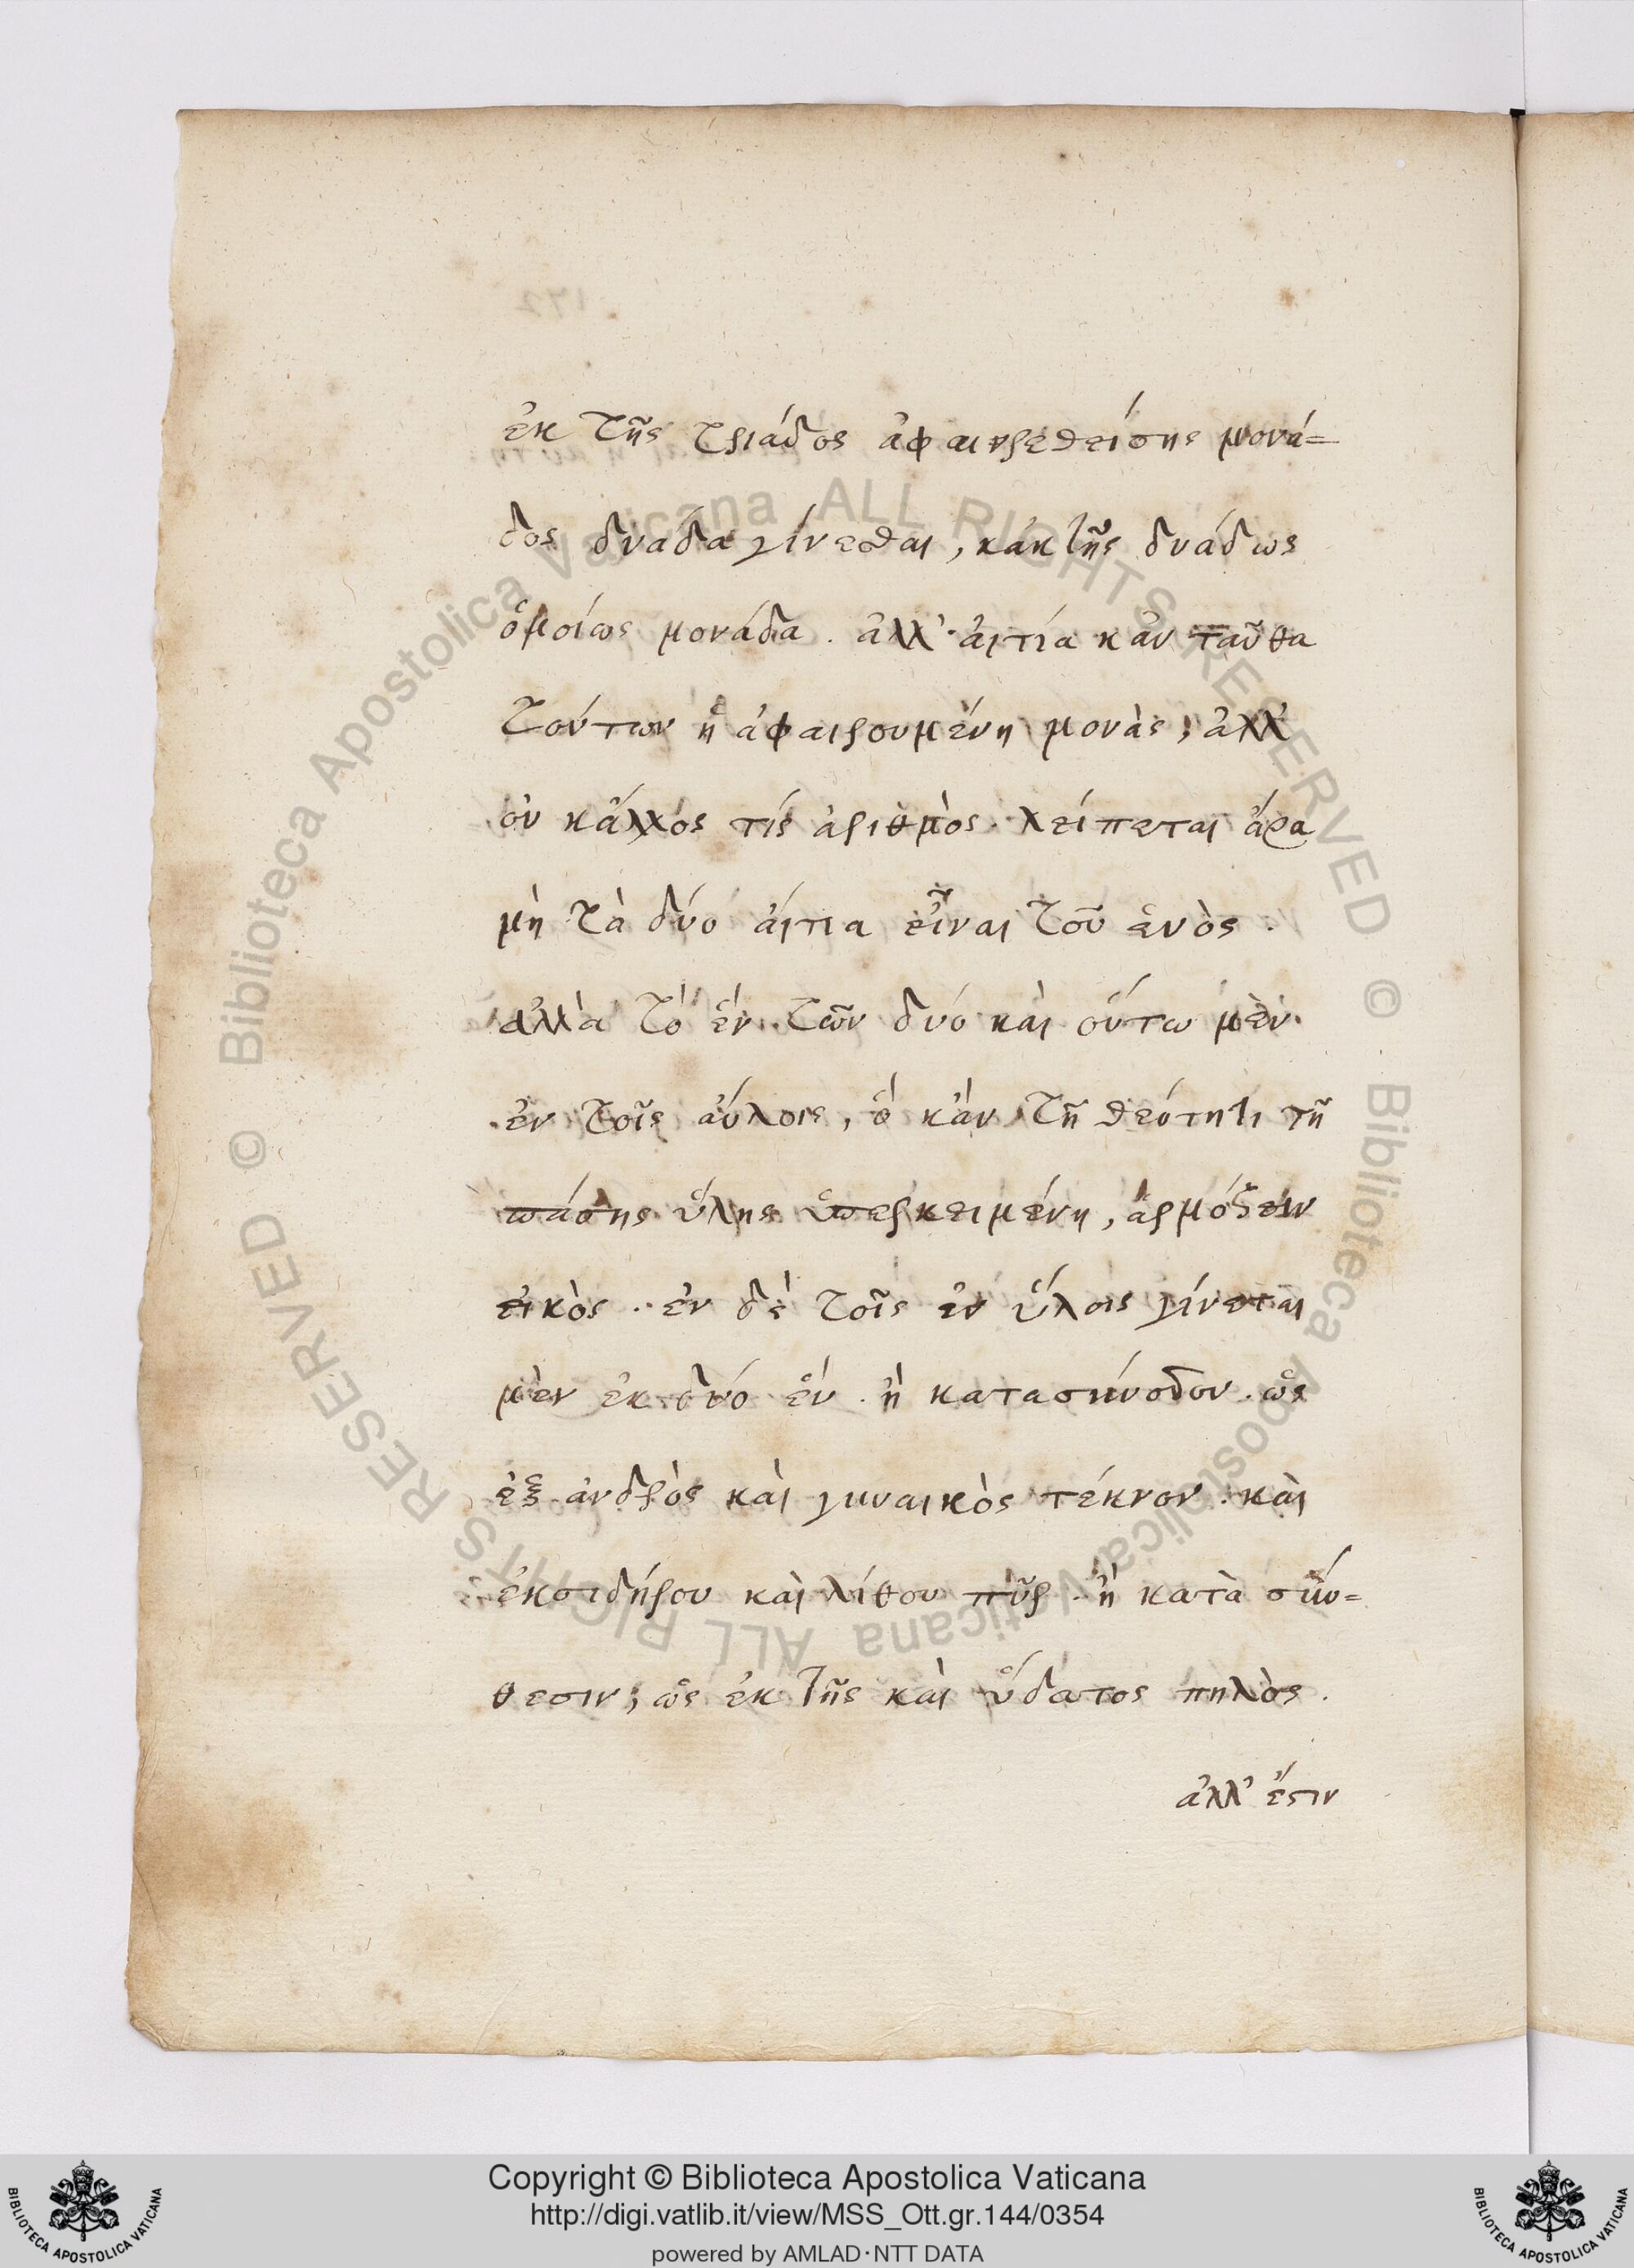 ἐκ τῆς τριάδος ἀφαιηρεθείσης μονά=
δος δυάδα γίνεσθαι, κἀκ τῆς δυάδως
ὁμοίως μονάδα. ἀλλ' ἀιτία κἀν ταῦθα
τούτων ἡ ἀφαιρουμένη μονὰς, ἀλλ'
οὐ κἄλλός τίς ἀριθμὸς. λείπεται ἄρα
μὴ τὰ δύο ἄιτια εἶναι τοῦ ἑνὸς.
ἀλλὰ τὸ ἕν τῶν δύο καὶ οὕτω μὲν.
ἐν τοῖς αὐλοις, ὃ κἀν τῆ θεότητι τῆ
πάσης ὕλης ὑπερκειμένη, ἁρμόζειν
εἰκὸς. ἐν δὲ τοῖς ἐν ὕλοις γίνεται
μὲν ἐκ δύο ἕν. ἢ κατασύνοδον. ὡς
ἐξ ἀνδρὸς καὶ γυναικὸς τέκνον. καὶ
ἐκσιδήρου καὶ λίθου πῦρ. ἢ κατὰ σύν=
θεσιν; ὡς ἐκ γῆς καὶ ὕδατος πηλὸς.
ἀλλ' ἔστιν
Copyright © Biblioteca Apostolica Vaticana
http://digi.vatlib.it/view/MSS_Ott.gr.144/0354
powered by AMLAD·NTT DATA
BIBLIOTECA APOSTOLICA VATICANA
BIBLIOTECA APOSTOLICA VATICANA
© Biblioteca Apostolica Vaticana ALL RIGHTS RESERVED
© Biblioteca Apostolica Vaticana ALL RIGHTS RESERVED